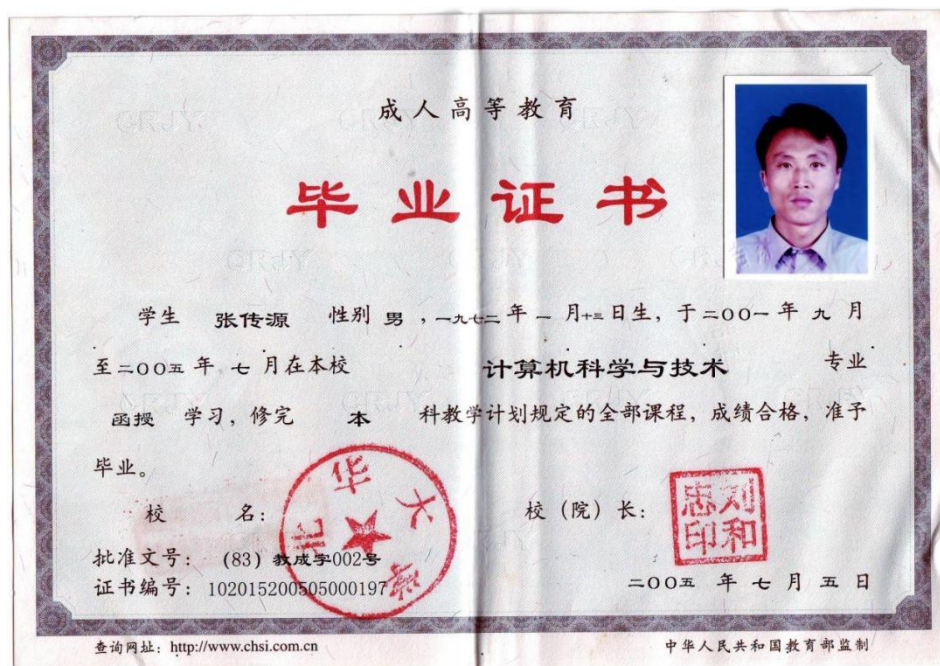 成人高等教育
毕业证书
学生 张传源 性别 男 ,一九七二 年 一 月十三日生, 于二OO一 年 九 月
至二OO五 年 七 月在本校 计算机科学与技术 专业
函授 学习, 修完 本 科教学计划规定的全部课程, 成绩合格, 准予
毕业。
校 名: 北华大学
校 (院) 长: 刘和忠印
批准文号: (83) 教成字002号
证书编号: 102015200505000197
二OO五 年 七 月 五 日
查询网址: http://www.chsi.com.cn
中华人民共和国教育部监制